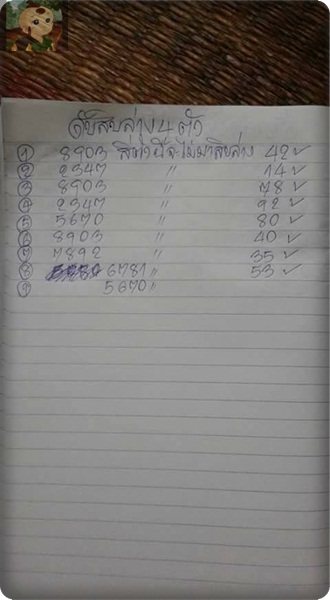 ดับสิบล่าง 4 ตัว
① 8903 สี่ตัวนี้จะไม่มาสิบล่าง 42 ✓
② 2347 〃 14 ✓
③ 8903 〃 78 ✓
④ 2347 〃 92 ✓
⑤ 5670 〃 80 ✓
⑥ 8903 〃 40 ✓
⑦ 7892 〃 35 ✓
⑧ 6781 〃 53 ✓
⑨ 5670 〃